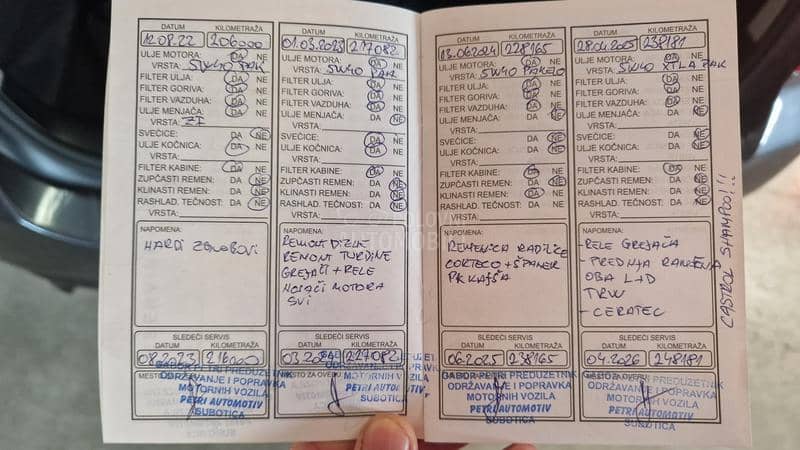 DATUM KILOMETRAŽA
12.08.22 206000
ULJE MOTORA: DA NE
VRSTA: 5W40 PAK
FILTER ULJA: DA NE
FILTER GORIVA: DA NE
FILTER VAZDUHA: DA NE
ULJE MENJAČA: DA NE
VRSTA: ZF
SVEĆICE: DA NE
ULJE KOČNICA: DA NE
VRSTA:
FILTER KABINE: DA NE
ZUPČASTI REMEN: DA NE
KLINASTI REMEN: DA NE
RASHLAD. TEČNOST: DA NE
VRSTA:
NAPOMENA:
HARDI ZGLOBOVI
SLEDEĆI SERVIS
DATUM KILOMETRAŽA
08.2023 216000
GABOR PETRI PREDUZETNIK
ODRŽAVANJE I POPRAVKA
MOTORNIH VOZILA
PETRI AUTOMOTIV
SUBOTICA
DATUM KILOMETRAŽA
01.03.2023 217082
ULJE MOTORA: DA NE
VRSTA: 5W40 PAK
FILTER ULJA: DA NE
FILTER GORIVA: DA NE
FILTER VAZDUHA: DA NE
ULJE MENJAČA: DA NE
VRSTA:
SVEĆICE: DA NE
ULJE KOČNICA: DA NE
VRSTA:
FILTER KABINE: DA NE
ZUPČASTI REMEN: DA NE
KLINASTI REMEN: DA NE
RASHLAD. TEČNOST: DA NE
VRSTA:
NAPOMENA:
REMONT DIZNE
REMONT TURBINE
GREJAČI + RELE
NOSAČI MOTORA
SVI
SLEDEĆI SERVIS
DATUM KILOMETRAŽA
03.2024 227082
ODRŽAVANJE I POPRAVKA
MOTORNIH VOZILA
PETRI AUTOMOTIV
SUBOTICA
DATUM KILOMETRAŽA
03.06.2024 228165
ULJE MOTORA: DA NE
VRSTA: 5W40 PAKELO
FILTER ULJA: DA NE
FILTER GORIVA: DA NE
FILTER VAZDUHA: DA NE
ULJE MENJAČA: DA NE
VRSTA:
SVEĆICE: DA NE
ULJE KOČNICA: DA NE
VRSTA:
FILTER KABINE: DA NE
ZUPČASTI REMEN: DA NE
KLINASTI REMEN: DA NE
RASHLAD. TEČNOST: DA NE
VRSTA:
NAPOMENA:
REMENICA RADILICE
CORTECO + ŠPANER
PK KAJŠA
SLEDEĆI SERVIS
DATUM KILOMETRAŽA
06.2025 238165
GABOR PETRI PREDUZETNIK
ODRŽAVANJE I POPRAVKA
MOTORNIH VOZILA
PETRI AUTOMOTIV
SUBOTICA
DATUM KILOMETRAŽA
28.04.2025 238181
ULJE MOTORA: DA NE
VRSTA: 5W40 XTLA PAK
FILTER ULJA: DA NE
FILTER GORIVA: DA NE
FILTER VAZDUHA: DA NE
ULJE MENJAČA: DA NE
VRSTA:
SVEĆICE: DA NE
ULJE KOČNICA: DA NE
VRSTA:
FILTER KABINE: DA NE
ZUPČASTI REMEN: DA NE
KLINASTI REMEN: DA NE
RASHLAD. TEČNOST: DA NE
VRSTA:
NAPOMENA:
- RELE GREJAČA
- PREDNJA RAMENA
OBA L+D
TRW
- CERATEC
CASTROL SHAMPOO!!!
SLEDEĆI SERVIS
DATUM KILOMETRAŽA
04.2026 248181
GABOR PETRI PREDUZETNIK
ODRŽAVANJE I POPRAVKA
MOTORNIH VOZILA
PETRI AUTOMOTIV
SUBOTICA